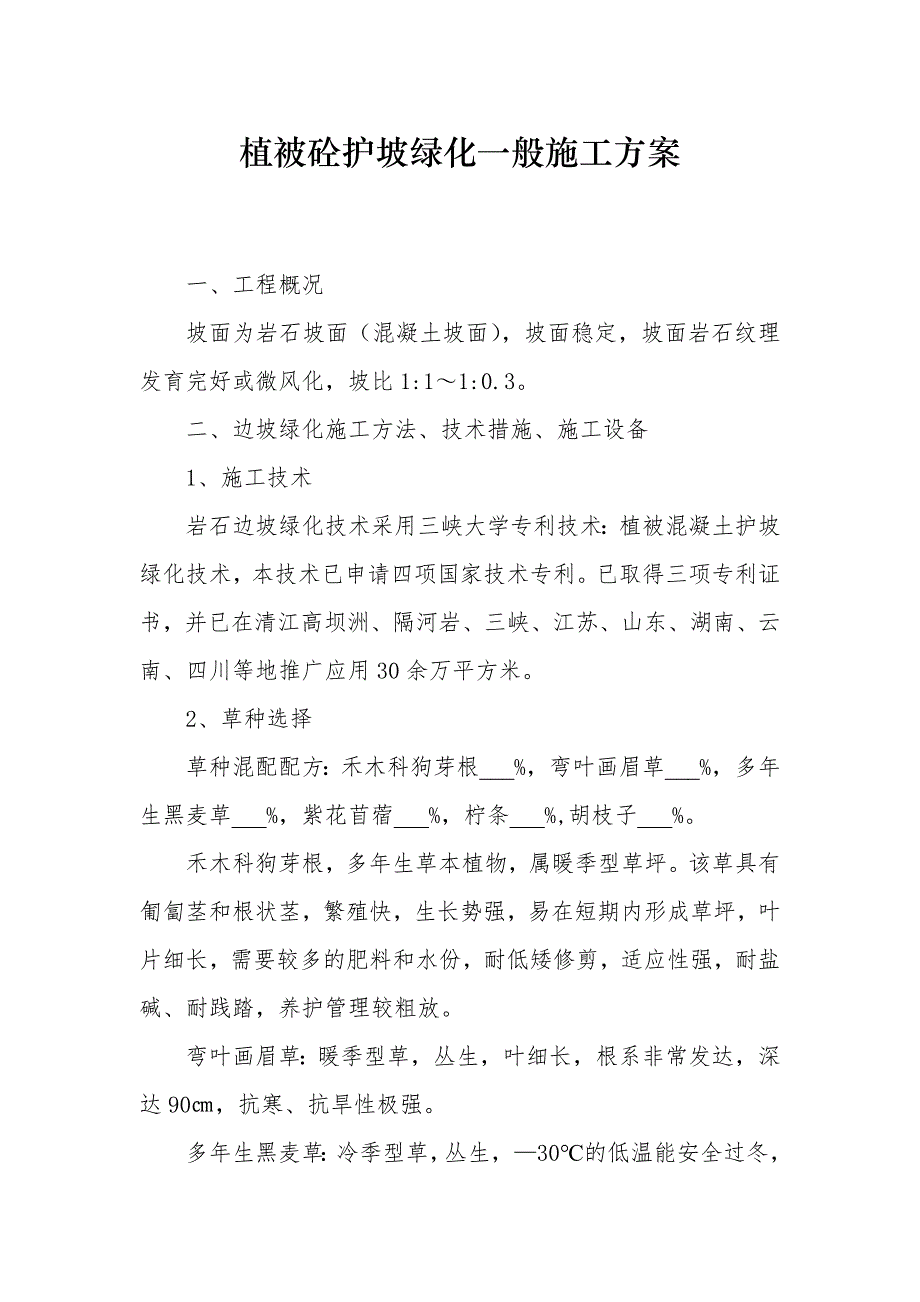 植被砼护坡绿化一般施工方案
一、工程概况
坡面为岩石坡面（混凝土坡面），坡面稳定，坡面岩石纹理
发育完好或微风化，坡比 1:1～1:0.3。
二、边坡绿化施工方法、技术措施、施工设备
1、施工技术
岩石边坡绿化技术采用三峡大学专利技术：植被混凝土护坡
绿化技术，本技术已申请四项国家技术专利。已取得三项专利证
书，并已在清江高坝洲、隔河岩、三峡、江苏、山东、湖南、云
南、四川等地推广应用 30 余万平方米。
2、草种选择
草种混配配方：禾木科狗芽根___%，弯叶画眉草___%，多年
生黑麦草___%，紫花苜蓿___%，柠条___%,胡枝子___%。
禾木科狗芽根，多年生草本植物，属暖季型草坪。该草具有
匍匐茎和根状茎，繁殖快，生长势强，易在短期内形成草坪，叶
片细长，需要较多的肥料和水份，耐低矮修剪，适应性强，耐盐
碱、耐践踏，养护管理较粗放。
弯叶画眉草：暖季型草，丛生，叶细长，根系非常发达，深
达 90㎝，抗寒、抗旱性极强。
多年生黑麦草：冷季型草，丛生，—30℃的低温能安全过冬，